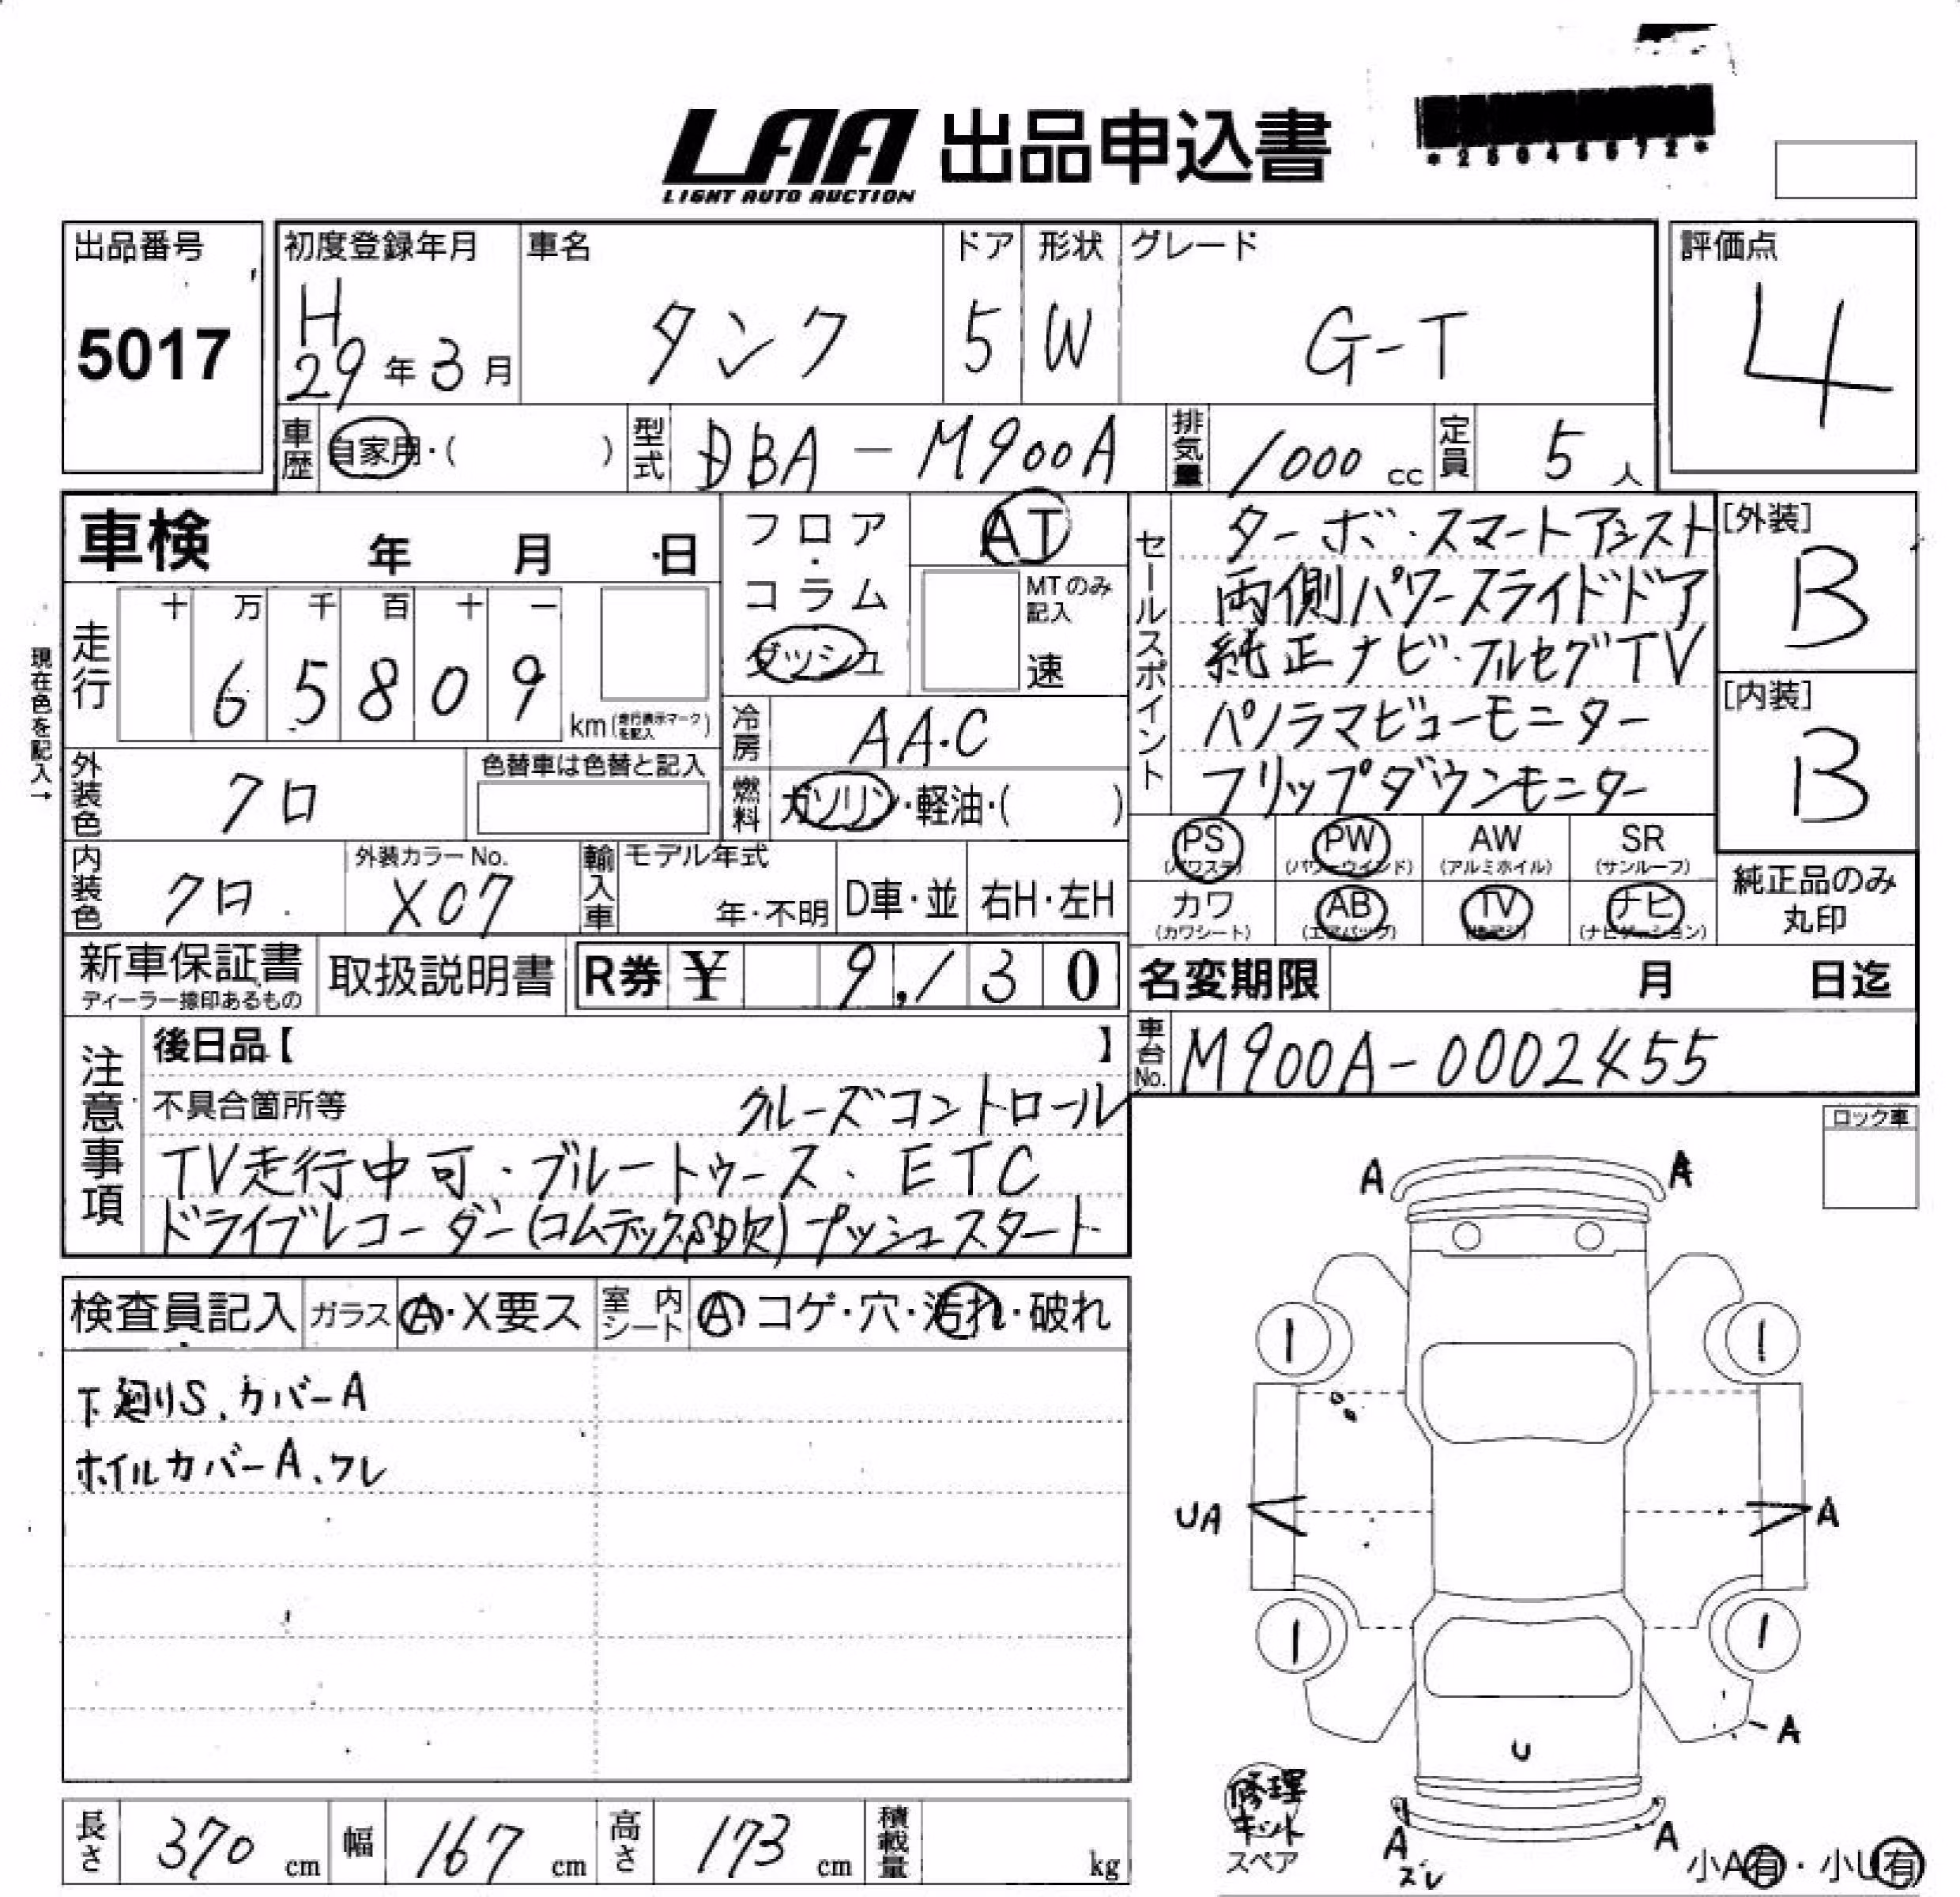 LAA 出品申込書
LIGHT AUTO AUCTION
出品番号
5017
初度登録年月
H
29年3月
車名
タンク
ドア
5
形状
W
グレード
G-T
評価点
4
車歴
自家用・( )
型式
DBA-M900A
排気量
1000 cc
定員
5人
車検 年 月 日
走行
十 万 千 百 十 一
6 5 8 0 9
km(走行表示マークを記入)
現在色を記入→
フロア・コラム
ダッシュ
AT
MTのみ記入
速
冷房
AA.C
燃料
ガソリン・軽油・( )
セールスポイント
ターボ・スマートアシスト
両側パワースライドドア
純正ナビ・フルセグTV
パノラマビューモニター
フリップダウンモニター
[外装]
B
[内装]
B
外装色
クロ
色替車は色替と記入
内装色
クロ.
外装カラーNo.
X07
輸入車
モデル年式
年・不明
D車・並
右H・左H
PS
(パワステ)
PW
(パワーウインド)
AW
(アルミホイル)
SR
(サンルーフ)
カワ
(カワシート)
AB
(エアバッグ)
TV
ナビ
(ナビゲーション)
純正品のみ
丸印
新車保証書
ディーラー捺印あるもの
取扱説明書
R券 ¥ 9,130
名変期限 月 日迄
車台No.
M900A-0002455
注意事項
後日品【 】
不具合箇所等 クルーズコントロール
TV走行中可・ブルートゥース・ETC
ドライブレコーダー(コムテックSD欠)プッシュスタート
ロック車
検査員記入
ガラス
A・X要ス
室内シート
A コゲ・穴・汚れ・破れ
下廻りS、カバーA
ホイルカバーA、ワレ
A A
UA A
A
U
修理
キット
スペア
A
ズレ
A
小A有・小U有
長さ 370 cm
幅 167 cm
高さ 173 cm
積載量 kg